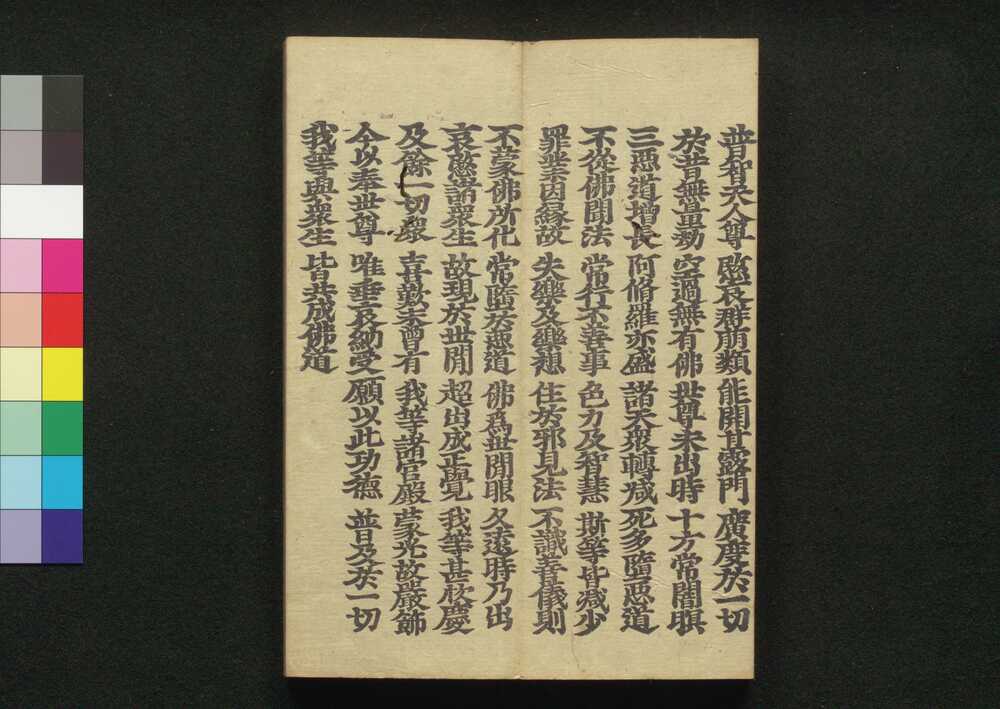 普智天人尊 愍哀群萌類 能開甘露門 廣度於一切
於昔無量劫 空過無有佛 世尊未出時 十方常闇瞑
三惡道增長 阿脩羅亦盛 諸天衆轉減 死多墮惡道
不從佛聞法 常行不善事 色力及智慧 斯等皆減少
罪業因緣故 失樂及樂想 住於邪見法 不識善儀則
不蒙佛所化 常墮於惡道 佛爲世間眼 久遠時乃出
哀愍諸衆生 故現於世間 超出成正覺 我等甚欣慶
及餘一切衆 喜歎未曾有 我等諸宮殿 蒙光故嚴飾
今以奉世尊 唯垂哀納受 願以此功德 普及於一切
我等與衆生 皆共成佛道